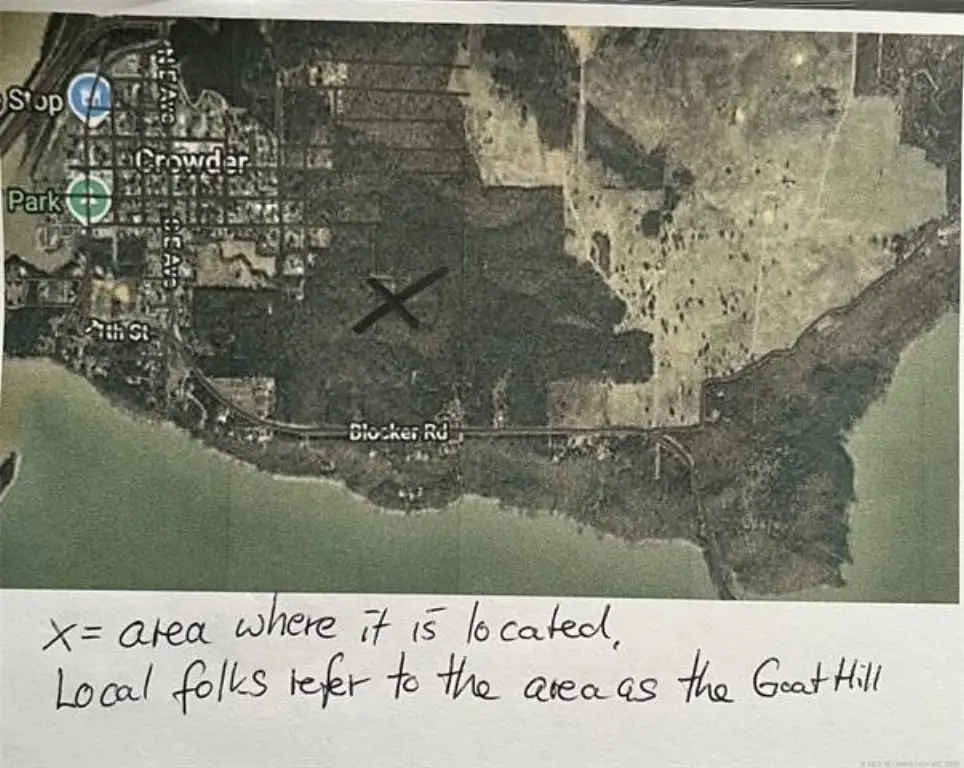 Stop
Crowder
Park
7th St
Blocker Rd
X= area where it is located.
Local folks refer to the area as the Goat Hill